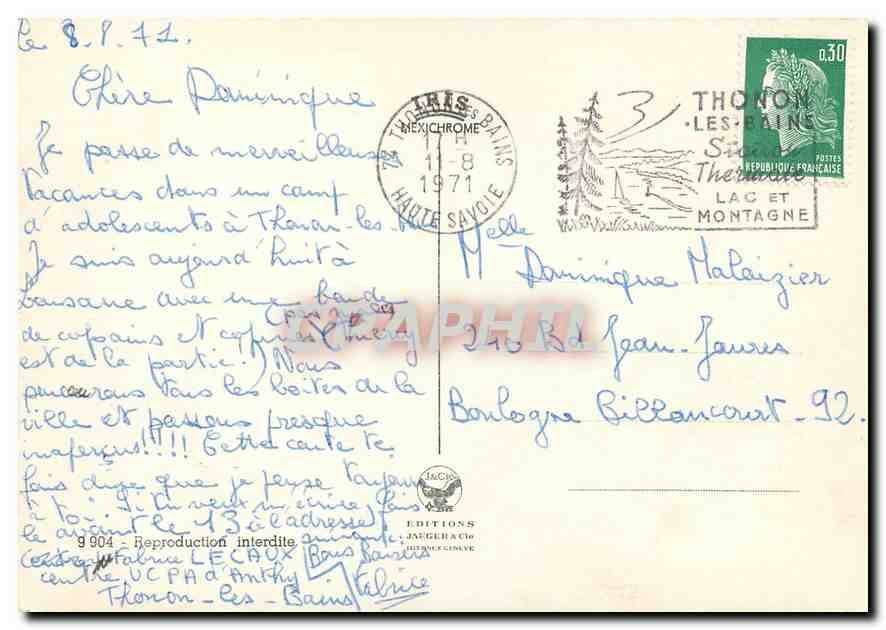 le 8.8.71.
Chère Dominique
Je passe de merveilleuses
vacances dans un camp
d'adolescents à Thonon-les-
Je suis aujourd'hui à
Lausanne avec une bande
de copains et copines (
est de la partie.) Nous
parcourons tous les boites de la
ville et passons presque
inaperçus!!!! Cette carte te
dire que je pense toujours
à toi. Si tu veux m'écrire, fais
le avant le 13 à l'adresse
suivante
9 904 - Reproduction interdite
Fabrice LECAUX
centre UCPA d'Anthy
Thonon-les-Bains
Bons Baisers
Fabrice
IRIS
MEXICHROME
74 THONON-les-BAINS
17 H
11-8
1971
HAUTE SAVOIE
THONON
·LES-BAINS
Station
Thermale
LAC ET
MONTAGNE
0,30
POSTES
REPUBLIQUE FRANÇAISE
Melle
Dominique Malaizier
210 Bd Jean-Jaures
Boulogne Billancourt-92.
CPAPHIL
J&Cie
EDITIONS
JAEGER & Cie